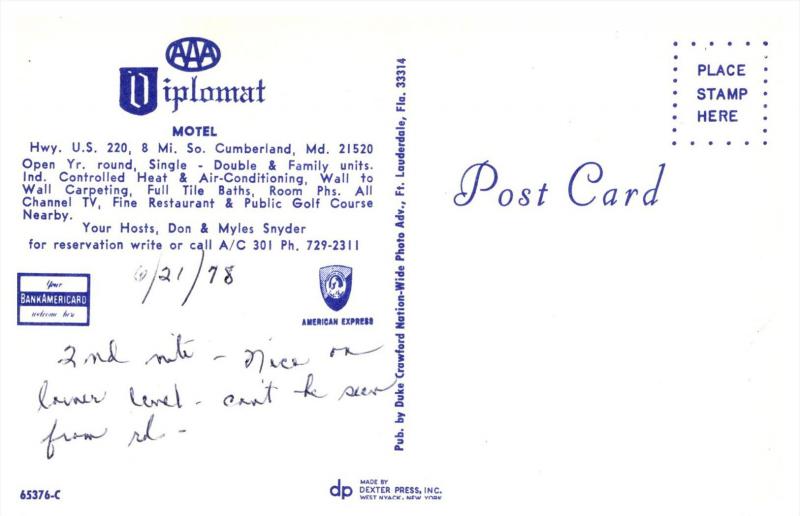 AAA
Diplomat
MOTEL
Hwy. U.S. 220, 8 Mi. So. Cumberland, Md. 21520
Open Yr. round, Single - Double & Family units.
Ind. Controlled Heat & Air-Conditioning, Wall to
Wall Carpeting, Full Tile Baths, Room Phs. All
Channel TV, Fine Restaurant & Public Golf Course
Nearby.
Your Hosts, Don & Myles Snyder
for reservation write or call A/C 301 Ph. 729-2311
6/21/78
Your
BANKAMERICARD
welcome here
AMERICAN EXPRESS
2nd nite - Nice on
lower level - can't be seen
from rd -
65376-C
Pub. by Duke Crawford Nation-Wide Photo Adv., Ft. Lauderdale, Fla. 33314
dp MADE BY
DEXTER PRESS, INC.
WEST NYACK, NEW YORK
PLACE
STAMP
HERE
Post Card